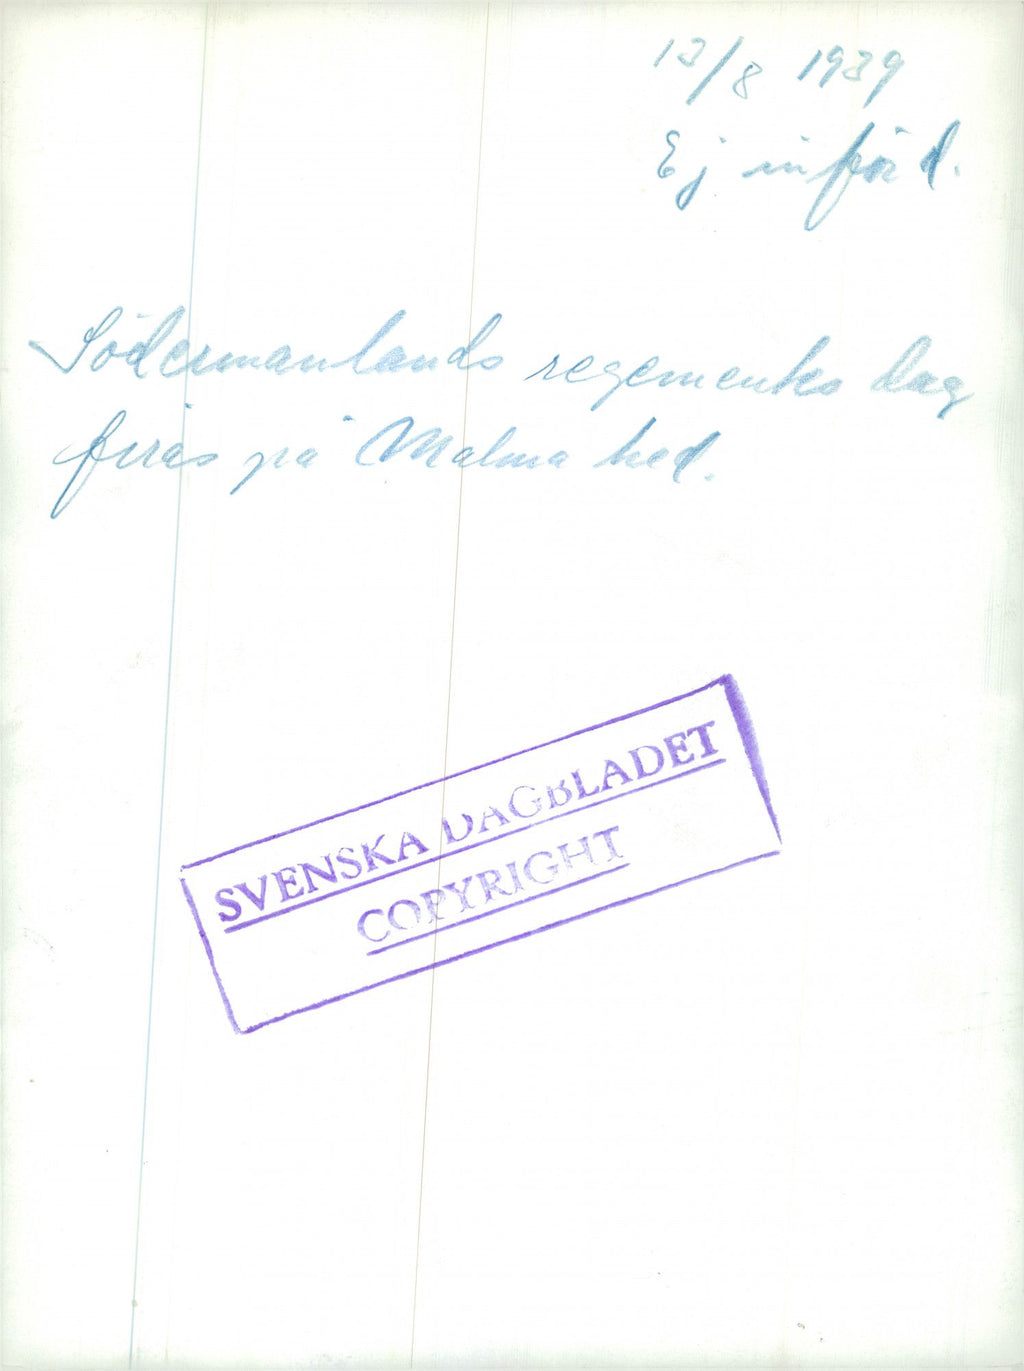 13/8 1939
Ej införd.
Södermanlands regementes dag
firas på Malma hed.
SVENSKA DAGBLADET
COPYRIGHT